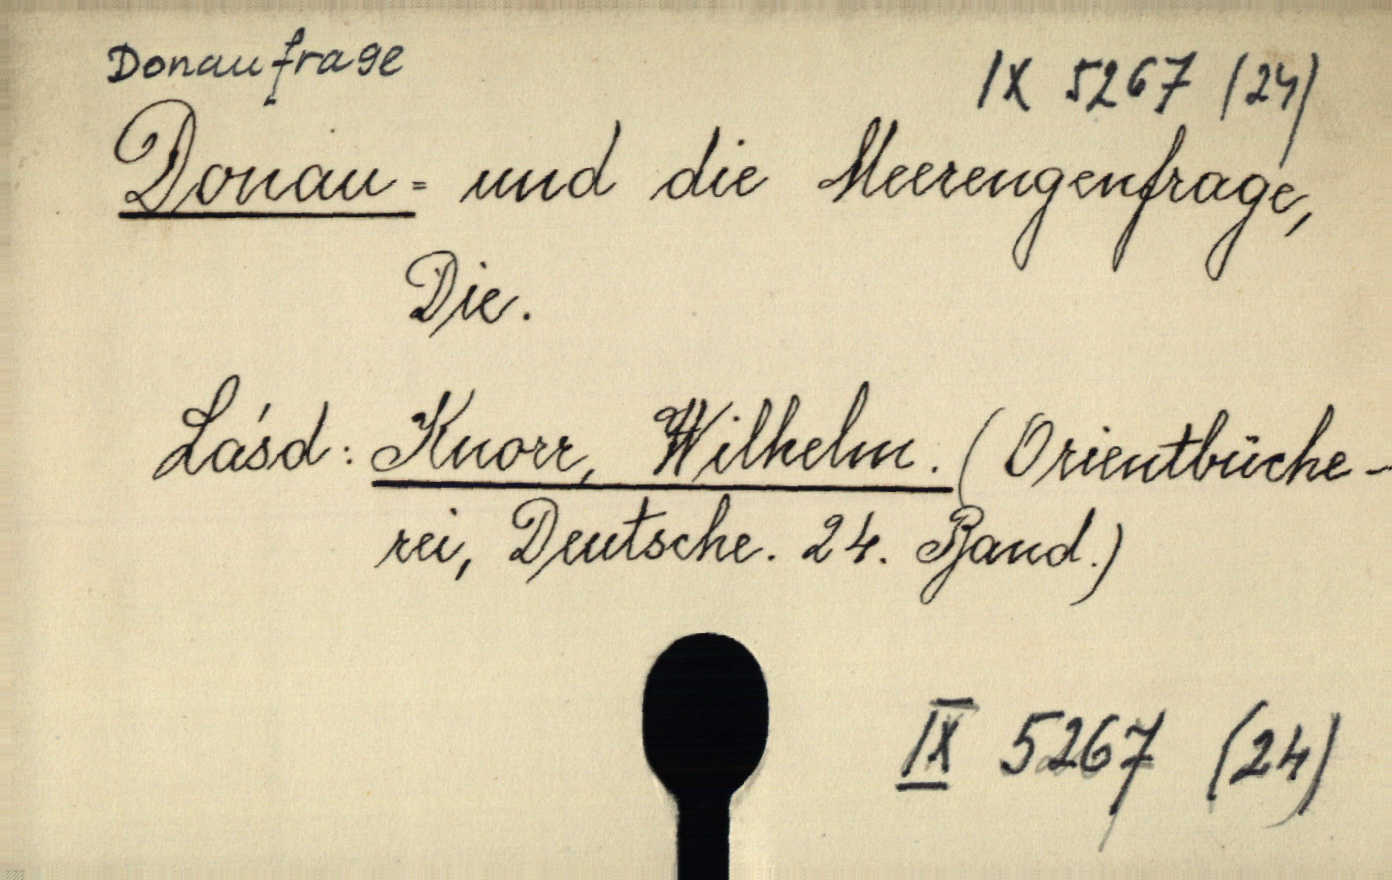 Donaufrage
IX 5267 (24)
Donau= und die Meerengenfrage,
Die.
Lásd: Knorr, Wilhelm. (Orientbüche-
rei, Deutsche. 24. Band.)
IX 5267 (24)